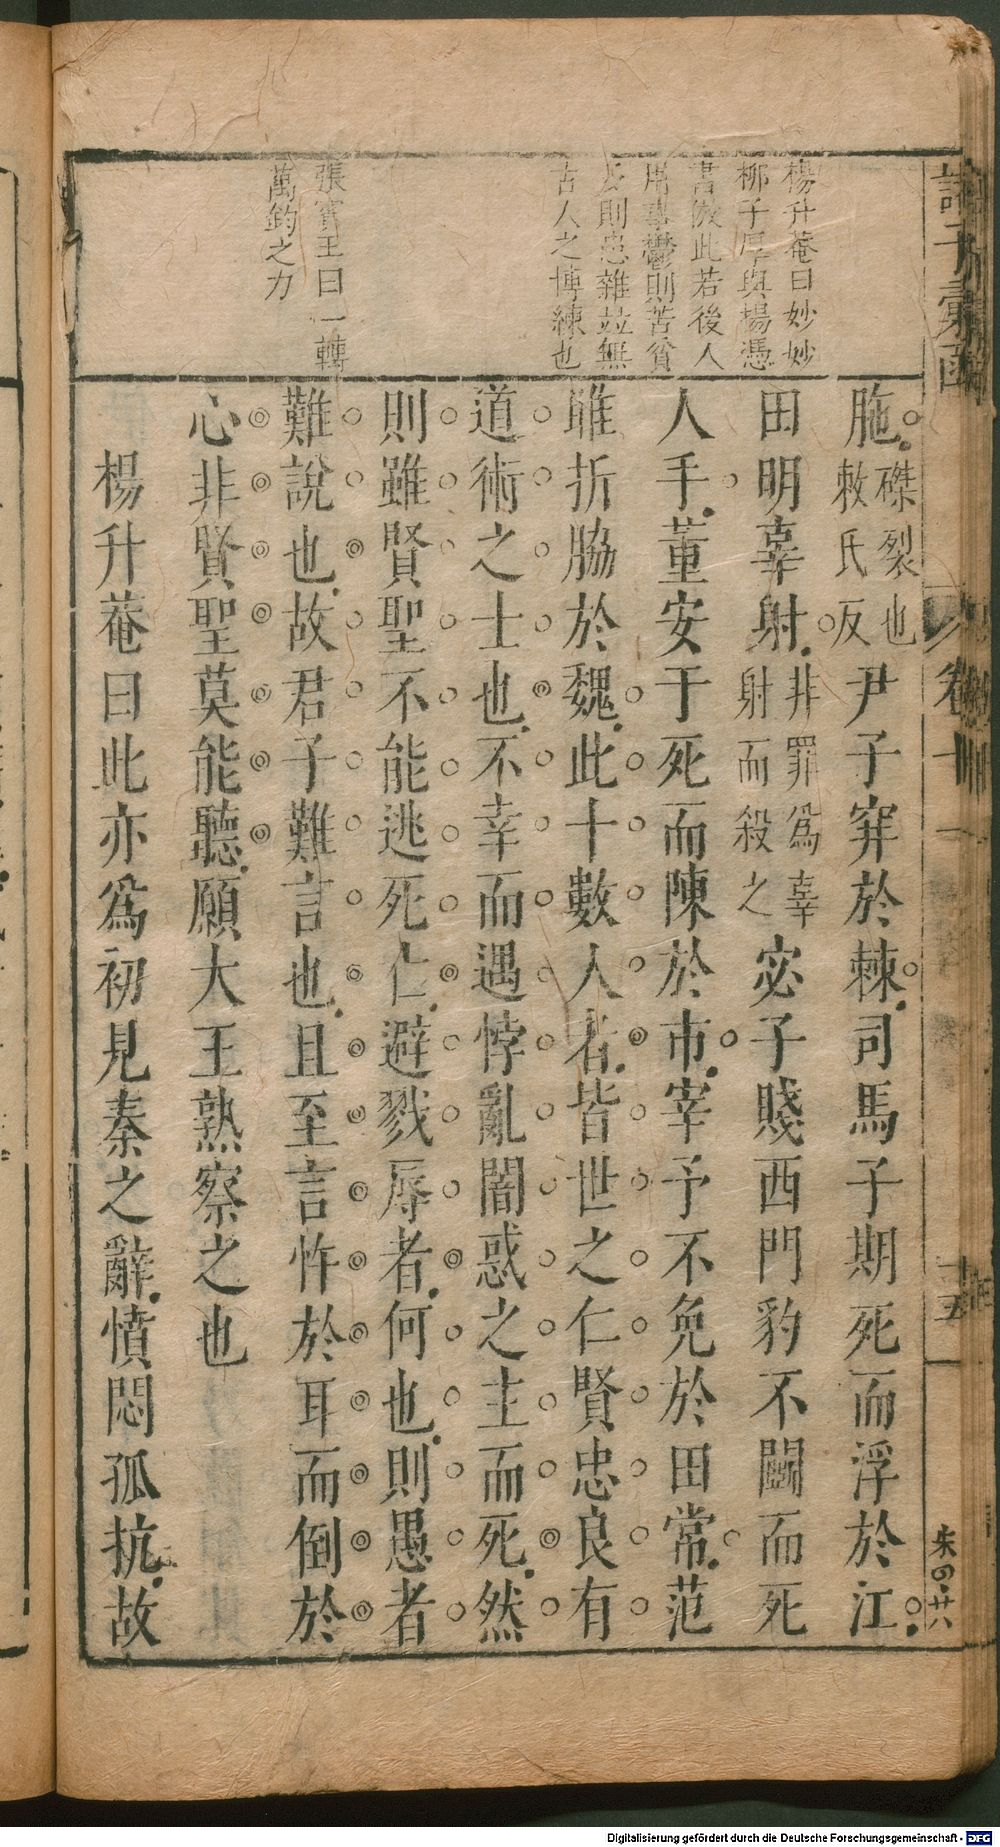 楊升菴曰妙妙
柳子厚與楊憑
書倣此若後人
用事鬱則苦貧
多則患雜並無
古人之博練也
張賓王曰一轉
萬鈞之力
胣磔裂也敕氏反尹子穽於棘司馬子期死而浮於江
田明辜射非罪爲辜射而殺之宓子賤西門豹不鬭而死
人手董安于死而陳於市宰予不免於田常范
睢折脇於魏此十數人者皆世之仁賢忠良有
道術之士也不幸而遇悖亂闇惑之主而死然
則雖賢聖不能逃死亡避戮辱者何也則愚者
難說也故君子難言也且至言忤於耳而倒於
心非賢聖莫能聽願大王熟察之也
楊升菴曰此亦爲初見秦之辭憤悶孤抗故
諸子彙函
卷十一
十五
朱四廿八
Digitalisierung gefördert durch die Deutsche Forschungsgemeinschaft - DFG